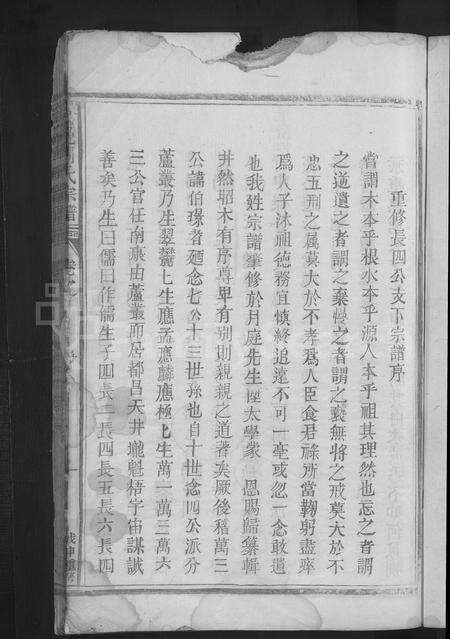 重修長四公支下宗譜序
嘗謂木本乎根水本乎源人本乎祖其理然也忘之者謂
之道遺之者謂之棄慢之者謂之褻無將之戒莫大於不
忠五刑之属莫大於不孝爲人臣食君祿所當鞠躬盡瘁
爲人子沐祖德務宜慎終追遠不可一毫或忽一念敢遺
也我姓宗譜肇修於月庭先生區太學蒙 恩賜歸纂輯
井然昭木有序尊卑有别則親親之道著矣厥後積萬三
公諱伯璟者廼念七公十三世孫也自十世念四公派分
蘆叢乃生翠鬱七生應孟應麟應極七生萬一萬三萬六
三公官任南康由蘆叢而居都昌天井壠魁梧宇宙謀誠
善矣乃生曰儒曰作儒生子四長二長四長五長六長四
氏宗譜
戊申